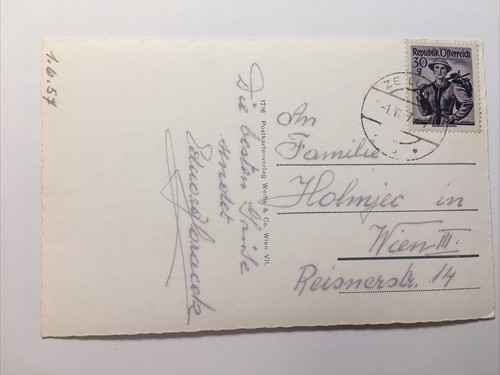 1.6.57
Die besten Grüße
sendet
1716 Postkartenverlag Weiße & Co. Wien VII.
Republik Österreich
30
g
ZELL
-1.VI.
An
Familie
Holmjec in
Wien III.
Reisnerstr. 14